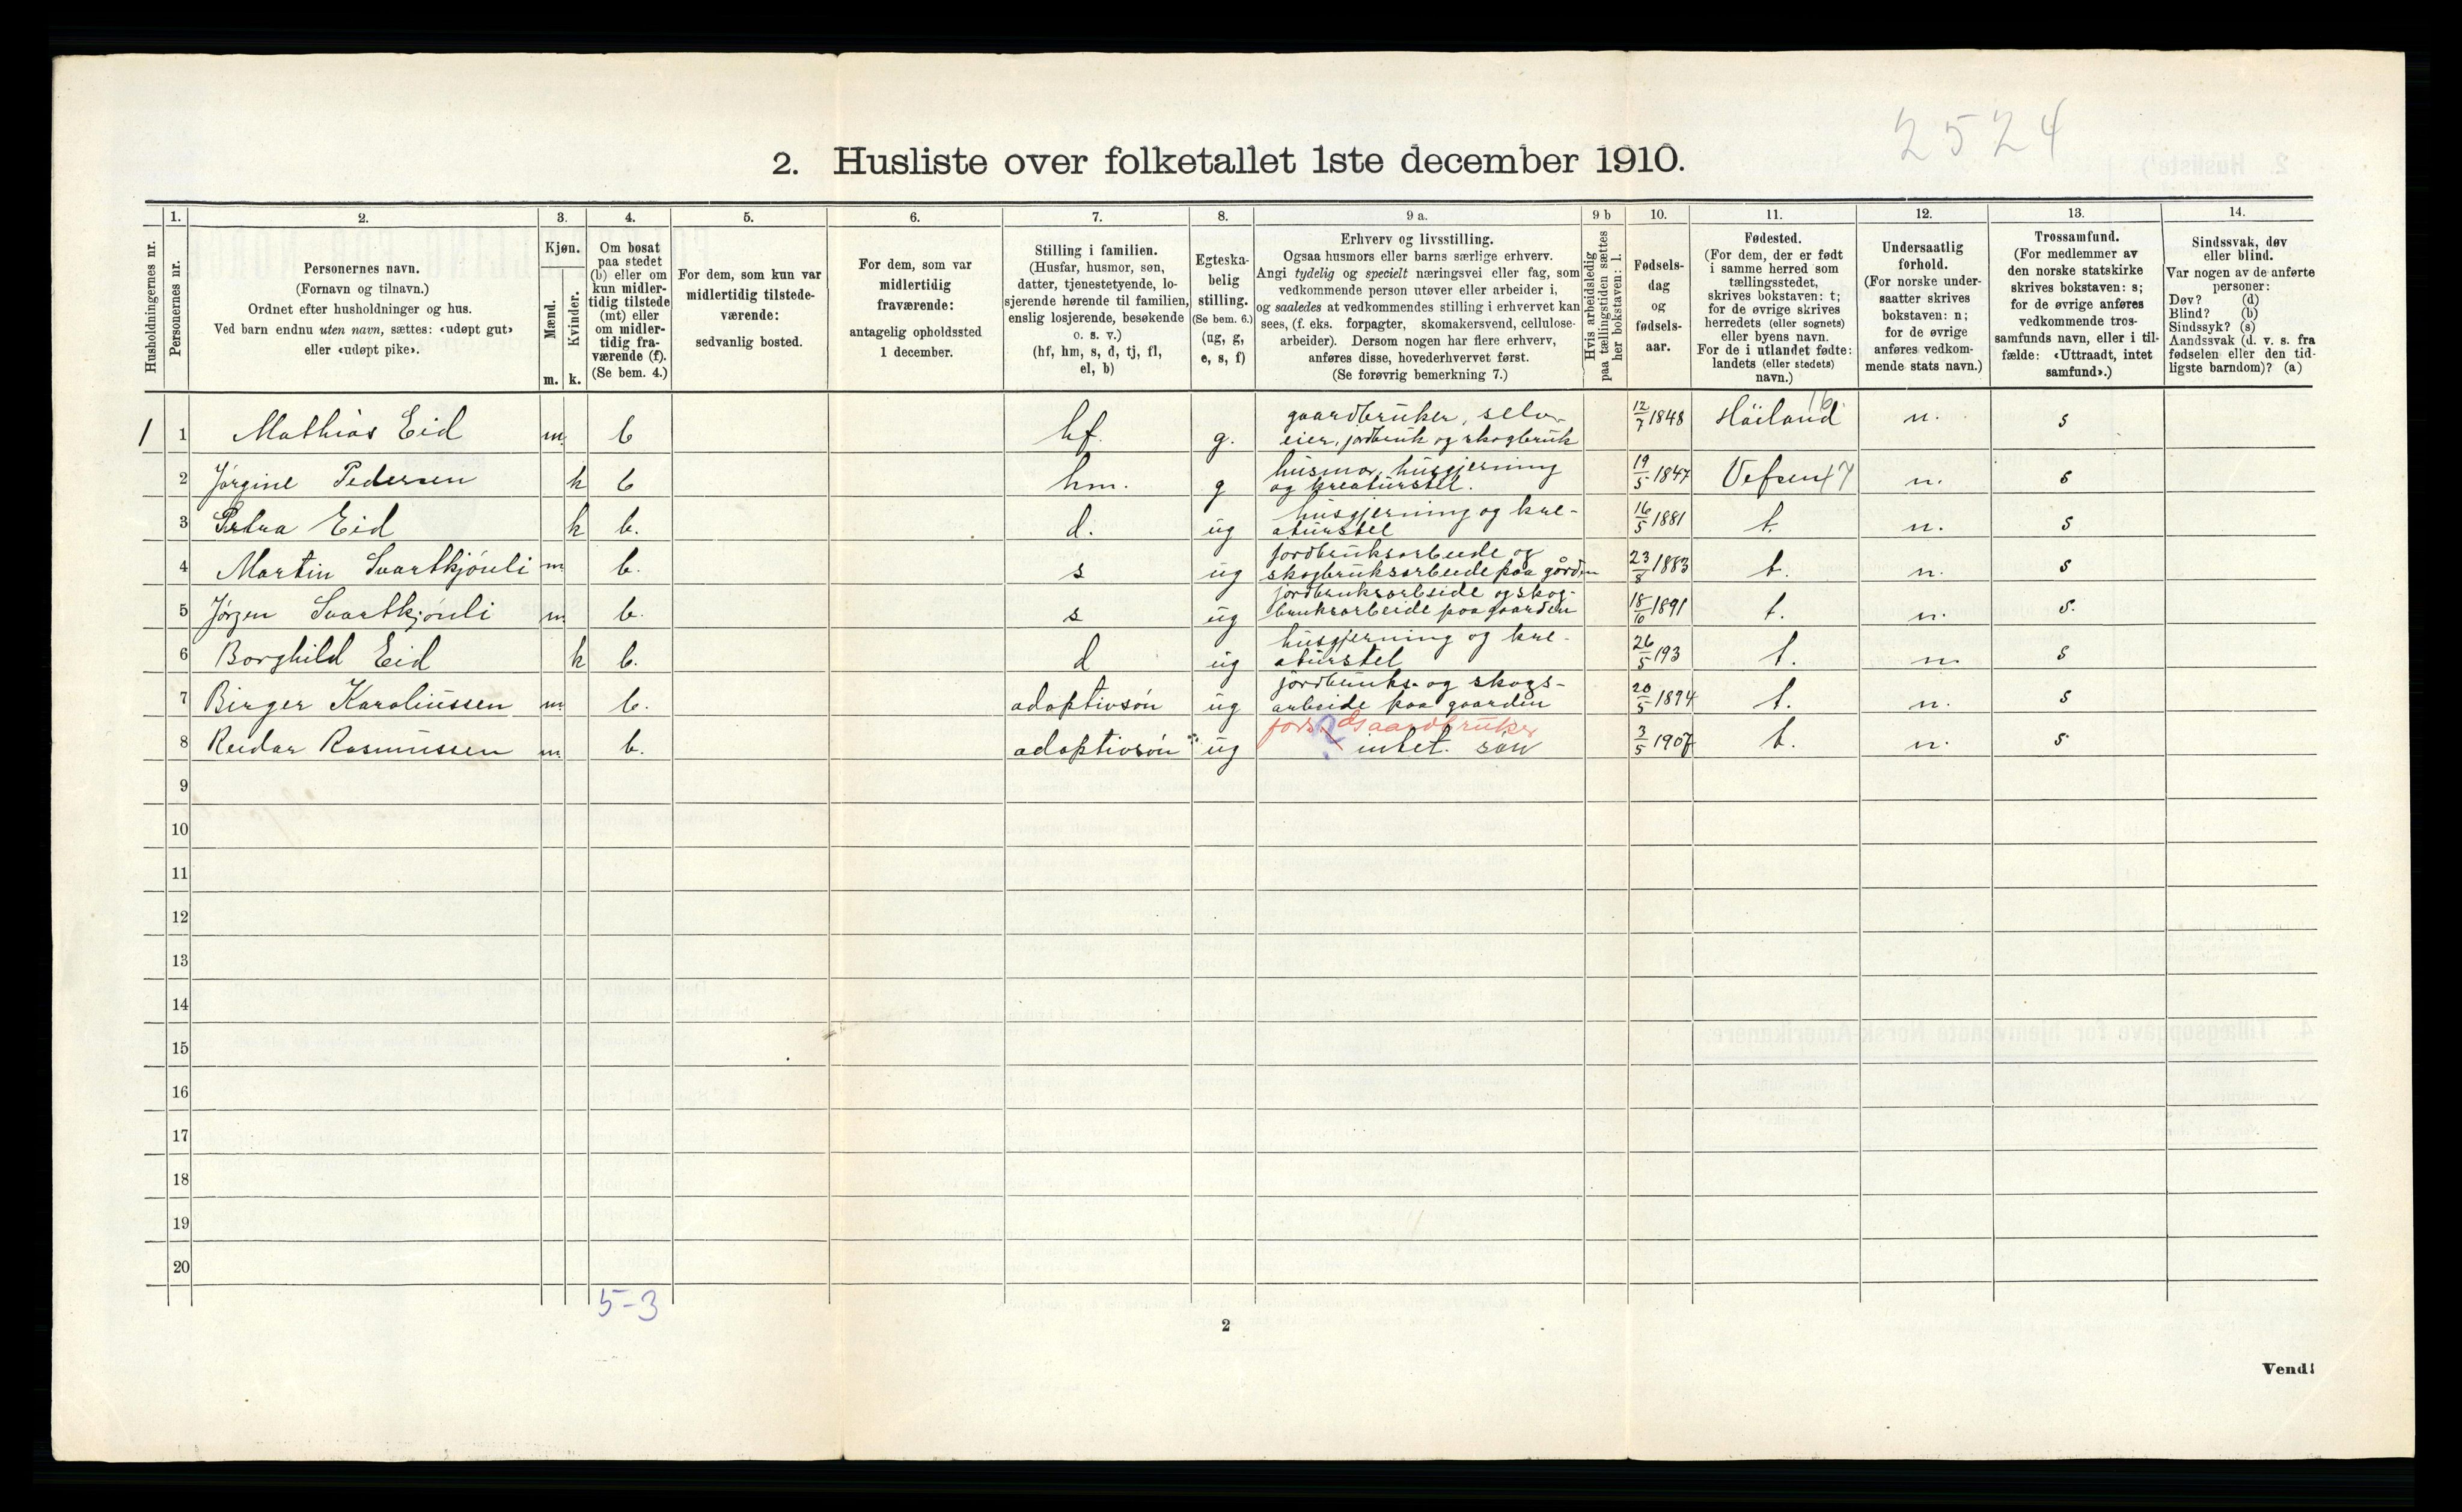 2524
2. Husliste over folketallet 1ste december 1910.
Husholdningernes nr.
1. Personernes nr.
2. Personernes navn.
(Fornavn og tilnavn.)
Ordnet efter husholdninger og hus.
Ved barn endnu uten navn, sættes: «udøpt gut»
eller «udøpt pike».
3. Kjøn.
Mænd. Kvinder.
m. k.
4. Om bosat
paa stedet
(b) eller om
kun midler-
tidig tilstede
(mt) eller
om midler-
tidig fra-
værende (f).
(Se bem. 4.)
5. For dem, som kun var
midlertidig tilstede-
værende:
sedvanlig bosted.
6. For dem, som var
midlertidig
fraværende:
antagelig opholdssted
1 december.
7. Stilling i familien.
(Husfar, husmor, søn,
datter, tjenestetyende, lo-
sjerende hørende til familien,
enslig losjerende, besøkende
o. s. v.)
(hf, hm, s, d, tj, fl,
el, b)
8. Egteska-
belig
stilling.
(Se bem. 6.)
(ug, g,
e, s, f)
9 a. Erhverv og livsstilling.
Ogsaa husmors eller barns særlige erhverv.
Angi tydelig og specielt næringsvei eller fag, som
vedkommende person utøver eller arbeider i,
og saaledes at vedkommendes stilling i erhvervet kan
sees, (f. eks. forpagter, skomakersvend, cellulose-
arbeider). Dersom nogen har flere erhverv,
anføres disse, hovederhvervet først.
(Se forøvrig bemerkning 7.)
9 b Hvis arbeidsledig
paa tællingstiden sættes
her bokstaven: l.
10. Fødsels-
dag
og
fødsels-
aar.
11. Fødested.
(For dem, der er født
i samme herred som
tællingsstedet,
skrives bokstaven: t;
for de øvrige skrives
herredets (eller sognets)
eller byens navn.
For de i utlandet fødte:
landets (eller stedets)
navn.)
12. Undersaatlig
forhold.
(For norske under-
saatter skrives
bokstaven: n;
for de øvrige
anføres vedkom-
mende stats navn.)
13. Trossamfund.
(For medlemmer av
den norske statskirke
skrives bokstaven: s;
for de øvrige anføres
vedkommende tros-
samfunds navn, eller i til-
fælde: «Uttraadt, intet
samfund».)
14. Sindssvak, døv
eller blind.
Var nogen av de anførte
personer:
Døv? (d)
Blind? (b)
Sindssyk? (s)
Aandssvak (d. v. s. fra
fødselen eller den tid-
ligste barndom)? (a)
1 1 Mathias Eid m b hf. g. gaardbruker, selv-
eier, jordbruk og skogbruk 12/7 1848 Høiland n. s
2 Jørgine Pedersen k b hm. g husmor, husgjerning
og kreaturstel. 19/5 1847 Vefsen n. s
3 Petra Eid k b. d. ug husgjerning og kre-
aturstel 16/5 1881 t. n. s
4 Martin Svartkjønli m b. s ug jordbruksarbeide og
skogbruksarbeide paa gården 23/8 1883 t. n. s
5 Jørgen Svartkjønli m b. s ug jordbruksarbeide og skog-
bruksarbeide paa gaarden 18/10 1891 t. n. s.
6 Borghild Eid k b. d ug husgjerning og kre-
aturstel 26/5 193 t. n. s
7 Birger Karoliussen m b. adoptivsøn ug jordbruks- og skogs-
arbeide paa gaarden 20/5 1894 t. n. s
8 Reidar Rasmussen m b. adoptivsøn ug fors. Gaardbruker
intet. søn 3/5 1907 t. n. s
9
10
11
12
13
14
15
16
17
18
19
20
5-3
2
Vend!